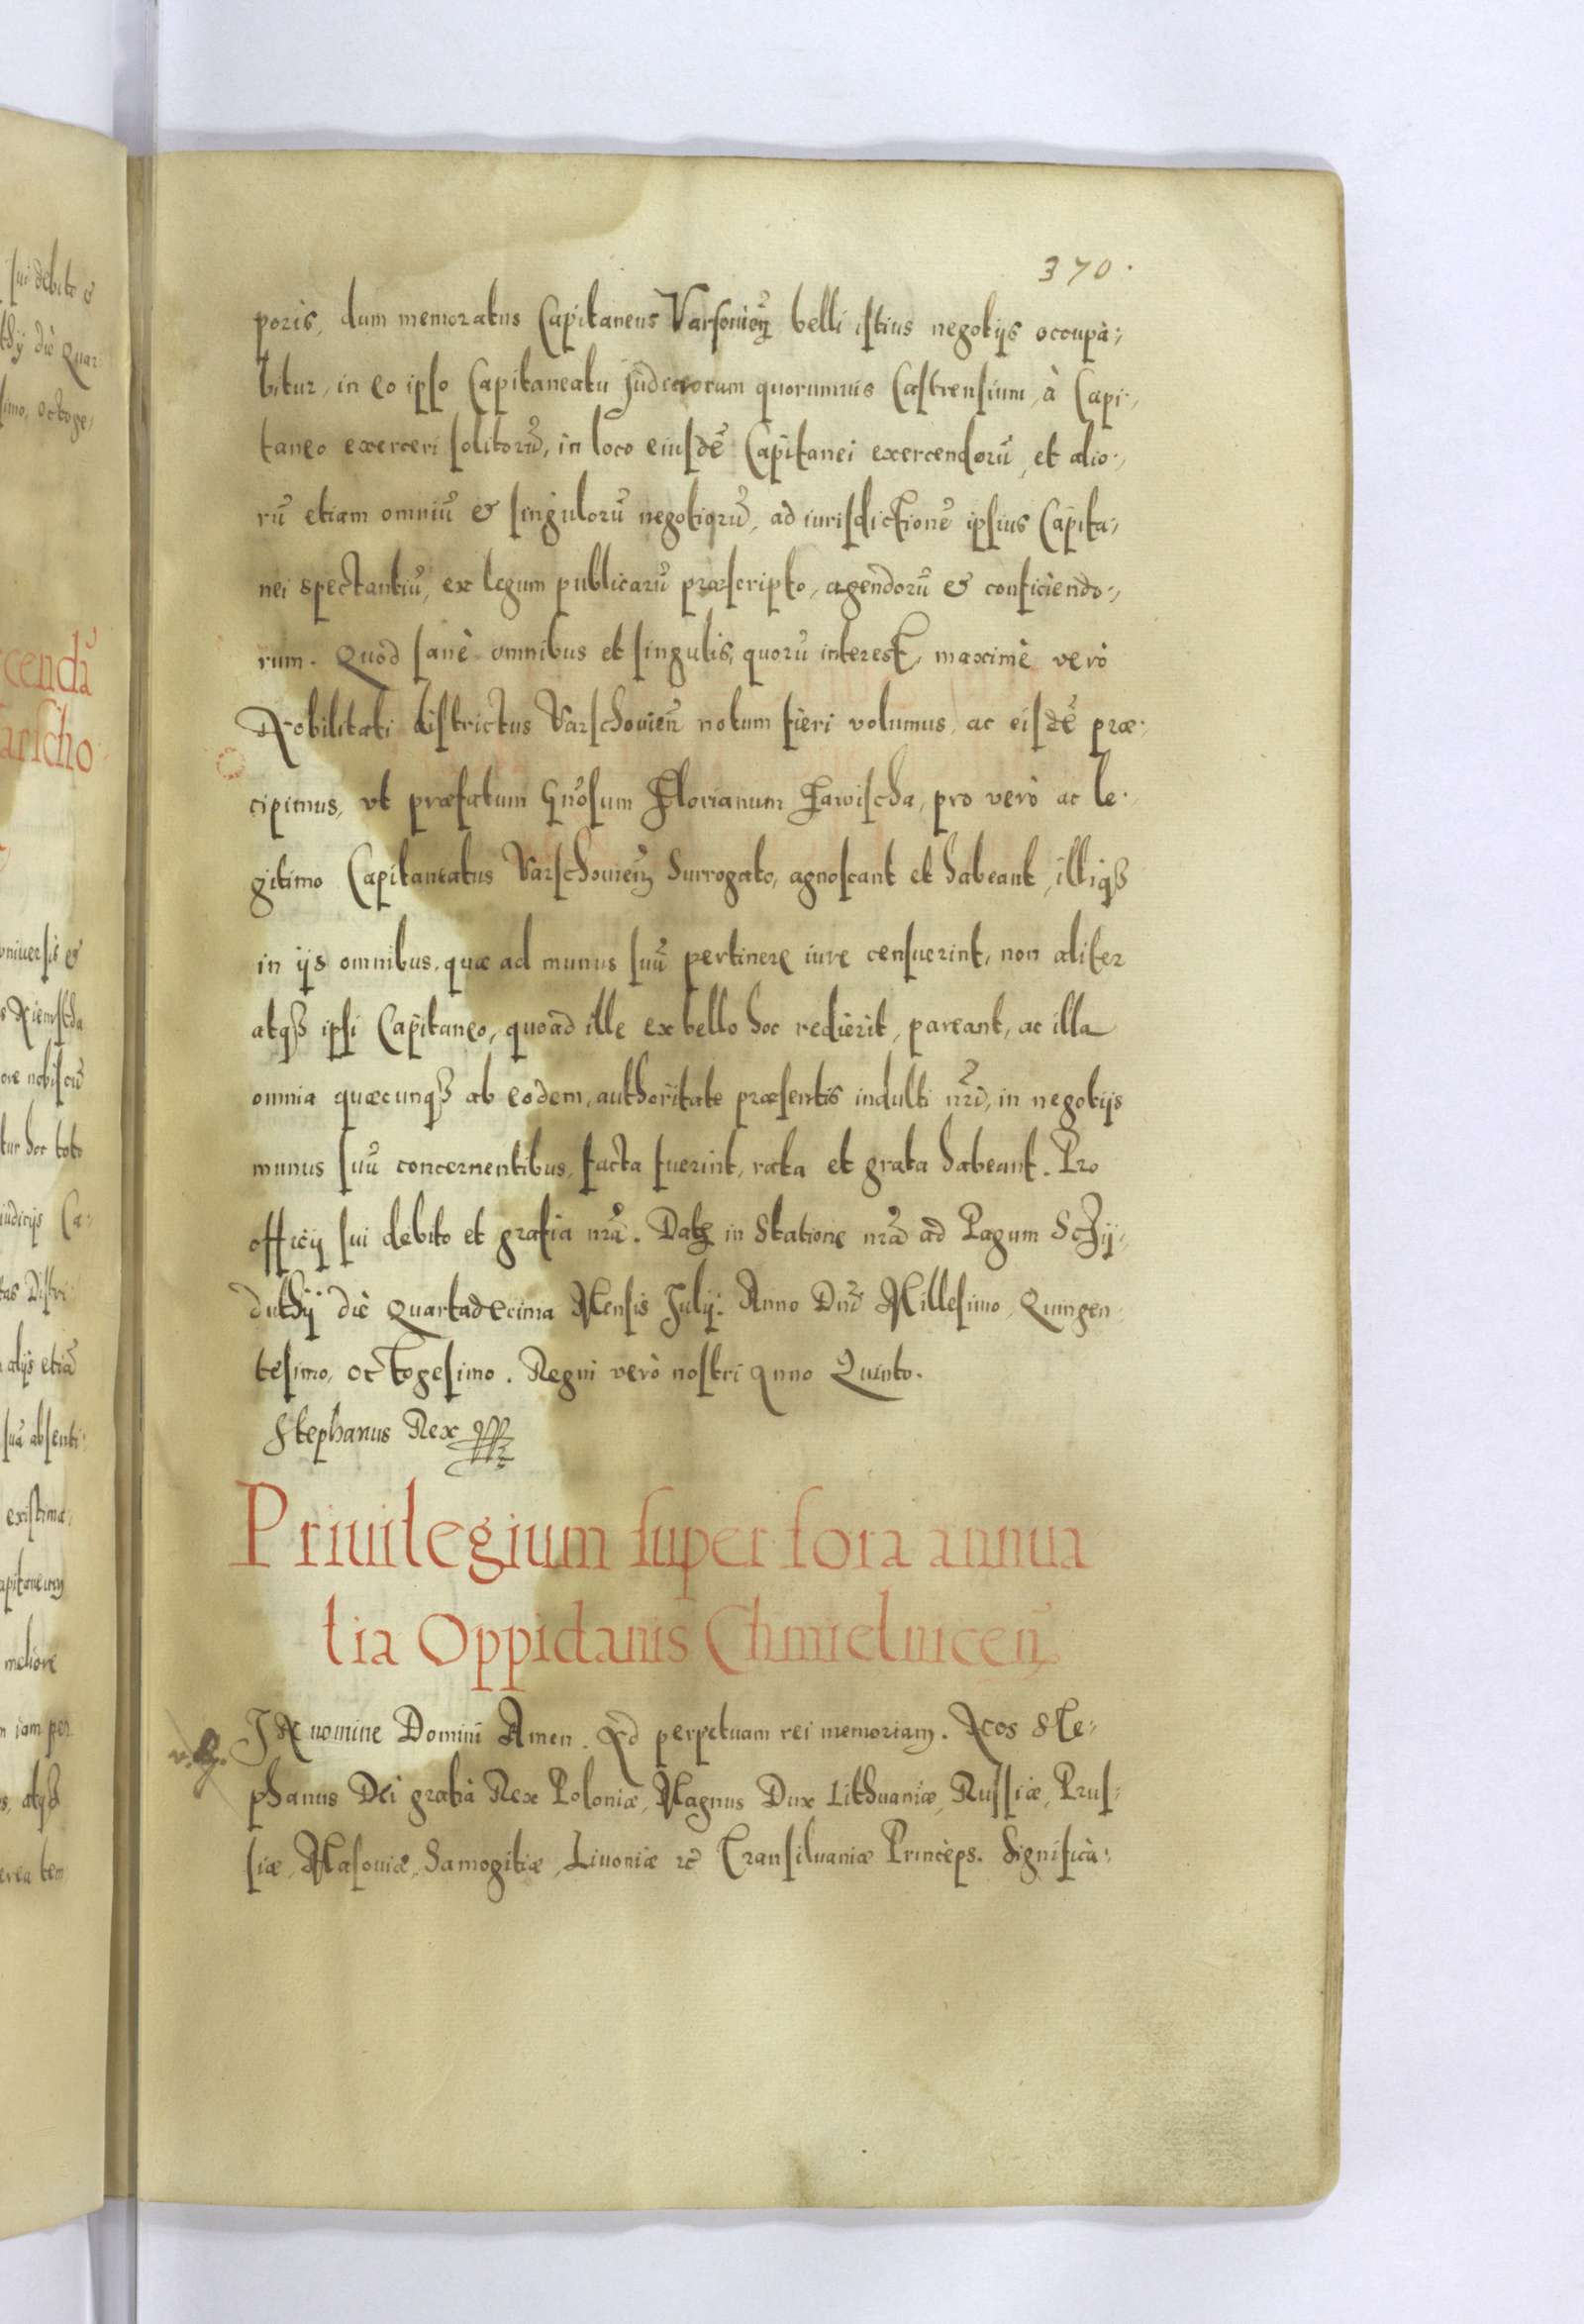 370.
poris, dum memoratus Capitaneus Varsouieñ belli istius negotijs occupà-,
bitur, in eo ipso Capitaneatu Judiciorum quorumuis Castrensium, à Capi-,
taneo exerceri solitorũ, in loco eiusdẽ Capitanei exercendorũ, et alio-,
rũ etiam omniũ & singulorũ negotiorũ, ad iurisdictionẽ ipsius Capita-,
nei spectantiũ, ex legum publicarũ præscripto, agendorũ & conficiendo-,
rum. Quod sanè omnibus et singulis, quorũ interest, maximè verò
Nobilitati districtus Varschouieñ notum fieri volumus, ac eisdẽ præ-
cipimus, vt præfatum Gñosum Florianum Parvischa, pro verò ac le-
gitimo Capitaneatus Varschouieñ Surrogato, agnoscant et habeant, illiqȝ
in ijs omnibus, quæ ad munus suũ pertinere iure censuerint, non aliter
atqȝ ipsi Capitaneo, quoad ille ex bello hoc redierit, pareant, ac illa
omnia quæcunqȝ ab eodem, authoritate præsentis indulti nr̃i, in negotijs
munus suũ concernentibus, facta fuerint, rata et grata habeant. Pro
officij sui debito et gratia nr̃a. Datȝ in Statione nr̃a ad Pagum
die Quartadecima Mensis Julij. Anno Dñi Millesimo, Quingen-
tesimo, octogesimo. Regni verò nostri Anno Quinto.
Stephanus Rex
Priuilegium super fora annua
lia Oppidanis Chmielniceñ
IN nomine Domini Amen. Ad perpetuam rei memoriam. Nos Ste-
phanus Dei gratia Rex Poloniæ, Magnus Dux Lithuaniæ, Russiæ, Prus-
siæ, Masouiæ, Samogitiæ, Liuoniæ &c Transiluaniæ Princeps. Significà-,